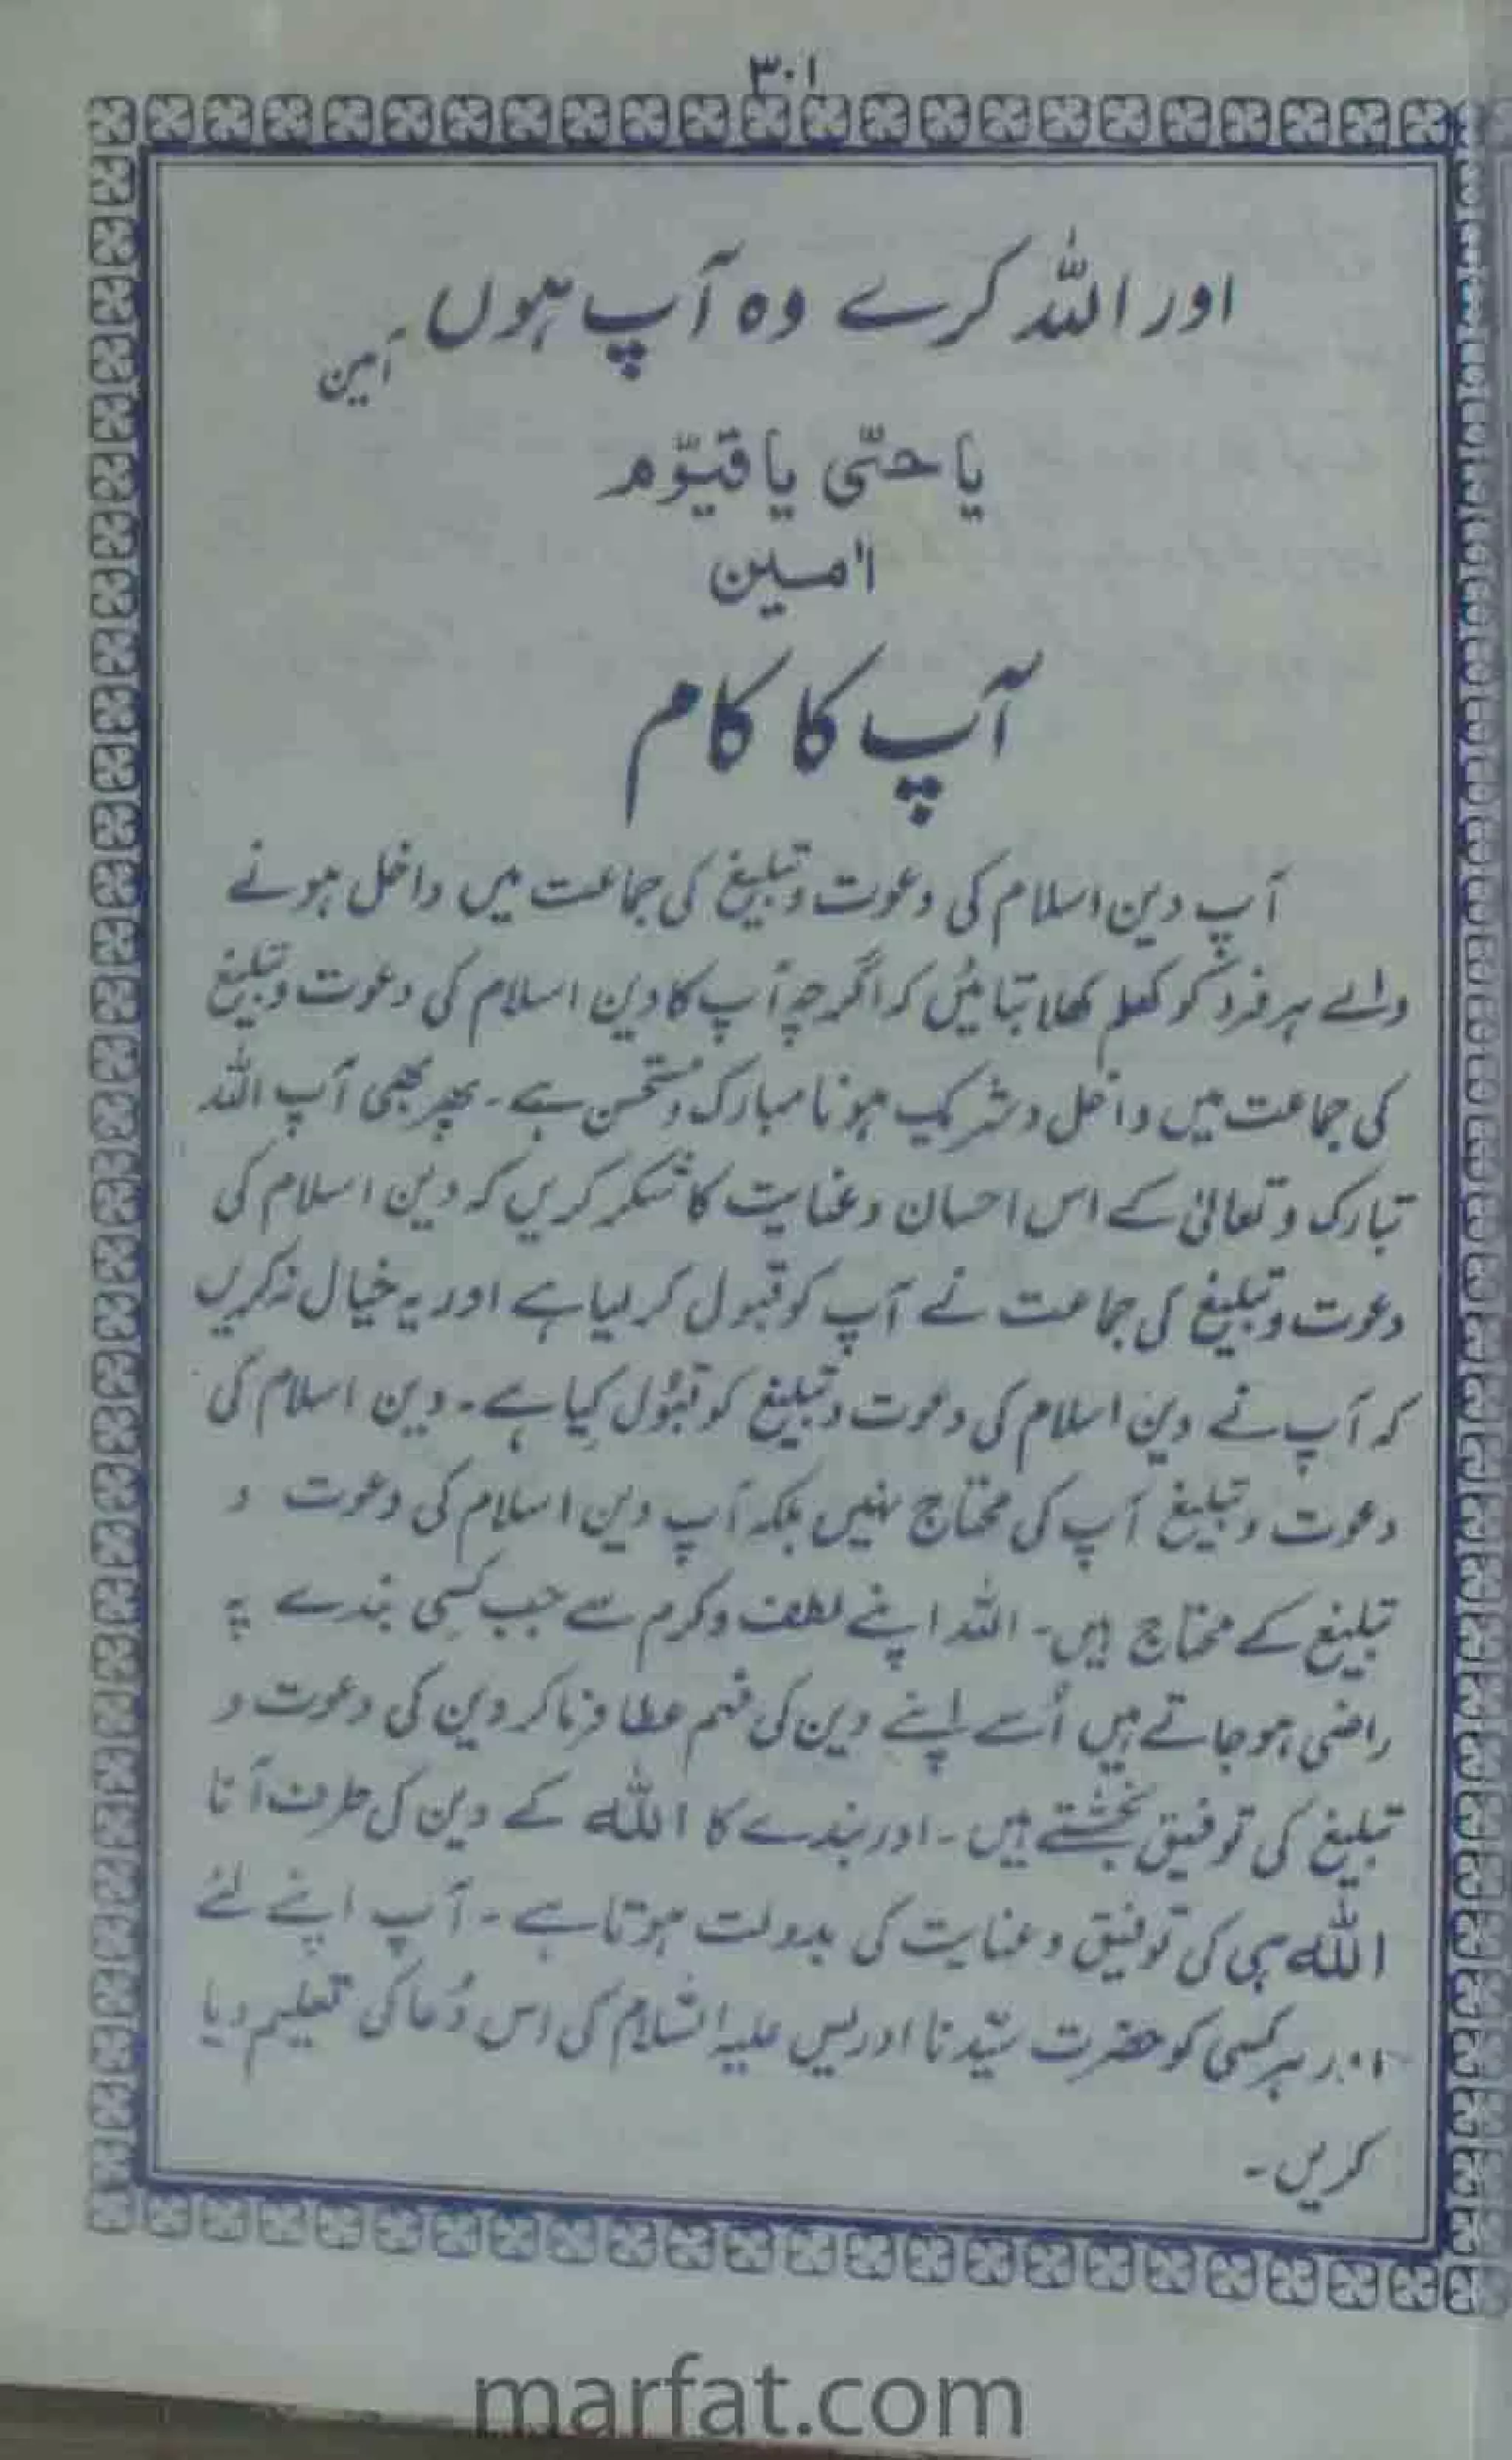 ۳۰۱
اور اللہ کرے وہ آپ ہوں آمین
یا حیّ یا قیّوم
اٰمین
آپ کا کام
آپ دین اسلام کی دعوت و تبلیغ کی جماعت میں داخل ہونے
والے ہر فرد کو کھلم کھلا بتائیں کہ اگرچہ آپ کا دین اسلام کی دعوت و تبلیغ
کی جماعت میں داخل و شریک ہونا مبارک و مستحسن ہے۔ پھر بھی آپ اللہ
تبارک و تعالیٰ کے اس احسان و عنایت کا شکر کریں کہ دین اسلام کی
دعوت و تبلیغ کی جماعت نے آپ کو قبول کر لیا ہے اور یہ خیال نہ کریں
کہ آپ نے دین اسلام کی دعوت و تبلیغ کو قبُول کِیا ہے۔ دین اسلام کی
دعوت و تبلیغ آپ کی محتاج نہیں بلکہ آپ دین اسلام کی دعوت و
تبلیغ کے محتاج ہیں۔ اللہ اپنے لطف و کرم سے جب کسی بندے پہ
راضی ہو جاتے ہیں اُسے اپنے دین کی فہم عطا فرما کر دین کی دعوت و
تبلیغ کی توفیق بخشتے ہیں۔ اور بندے کا اللہ کے دین کی طرف آنا
اللہ ہی کی توفیق و عنایت کی بدولت ہوتا ہے۔ آپ اپنے لئے
اور ہر کسی کو حضرت سیّدنا ادریس علیہ السّلام کی اس دُعا کی تعلیم دیا
کریں۔
marfat.com